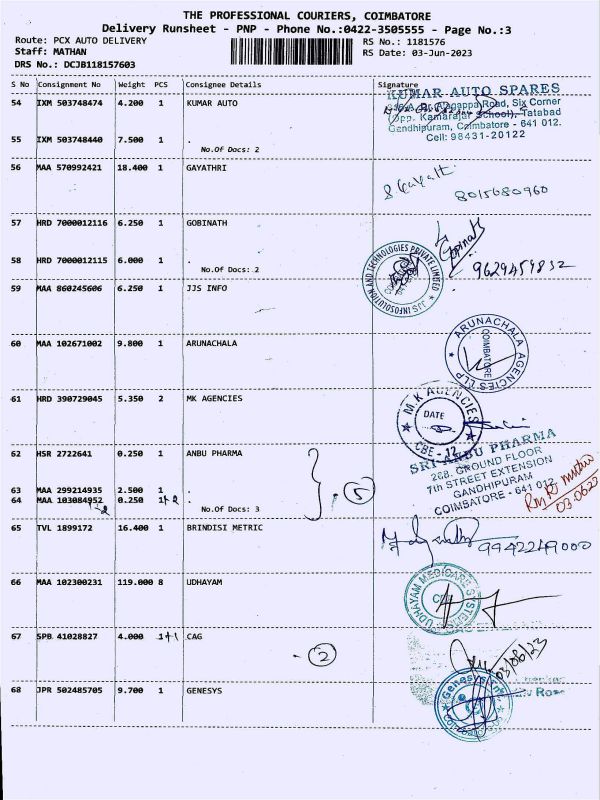 THE PROFESSIONAL COURIERS, COIMBATORE
Delivery Runsheet - PNP - Phone No.:0422-3505555 - Page No.:3
Route: PCX AUTO DELIVERY RS No.: 1181576
Staff: MATHAN RS Date: 03-Jun-2023
DRS No.: DCJB118157603
S No Consignment No Weight PCS Consignee Details Signature
54 IXM 503748474 4.200 1 KUMAR AUTO
KUMAR AUTO SPARES
Road, Six Corner
(Opp. Kamarajar School), Tatabad
Gandhipuram, Coimbatore - 641 012.
Cell: 98431-20122
55 IXM 503748440 7.500 1 .
No.Of Docs: 2
56 MAA 570992421 18.400 1 GAYATHRI
8015680960
57 HRD 7000012116 6.250 1 GOBINATH
Gopinath
58 HRD 7000012115 6.000 1 .
No.Of Docs: 2
9629459832
59 MAA 860245606 6.250 1 JJS INFO
JJS INFOSOLUTION AND TECHNOLOGIES PRIVATE LIMITED
60 MAA 102671002 9.800 1 ARUNACHALA
ARUNACHALA AGENCIES LLP
COIMBATORE
61 HRD 390729045 5.350 2 MK AGENCIES
M.K AGENCIES
DATE
CBE - 12
62 HSR 2722641 0.250 1 ANBU PHARMA
SRI ANBU PHARMA
268, GROUND FLOOR
7th STREET EXTENSION
GANDHIPURAM
COIMBATORE - 641 012
63 MAA 299214935 2.500 1 .
64 MAA 103084952 0.250 1+2 .
No.Of Docs: 3
5
65 TVL 1899172 16.400 1 BRINDISI METRIC
9942249000
66 MAA 102300231 119.000 8 UDHAYAM
UDHAYAM MEDICARE SYSTEMS
67 SPB 41028827 4.000 1+1 CAG
2
03/06/23
68 JPR 502485705 9.700 1 GENESYS